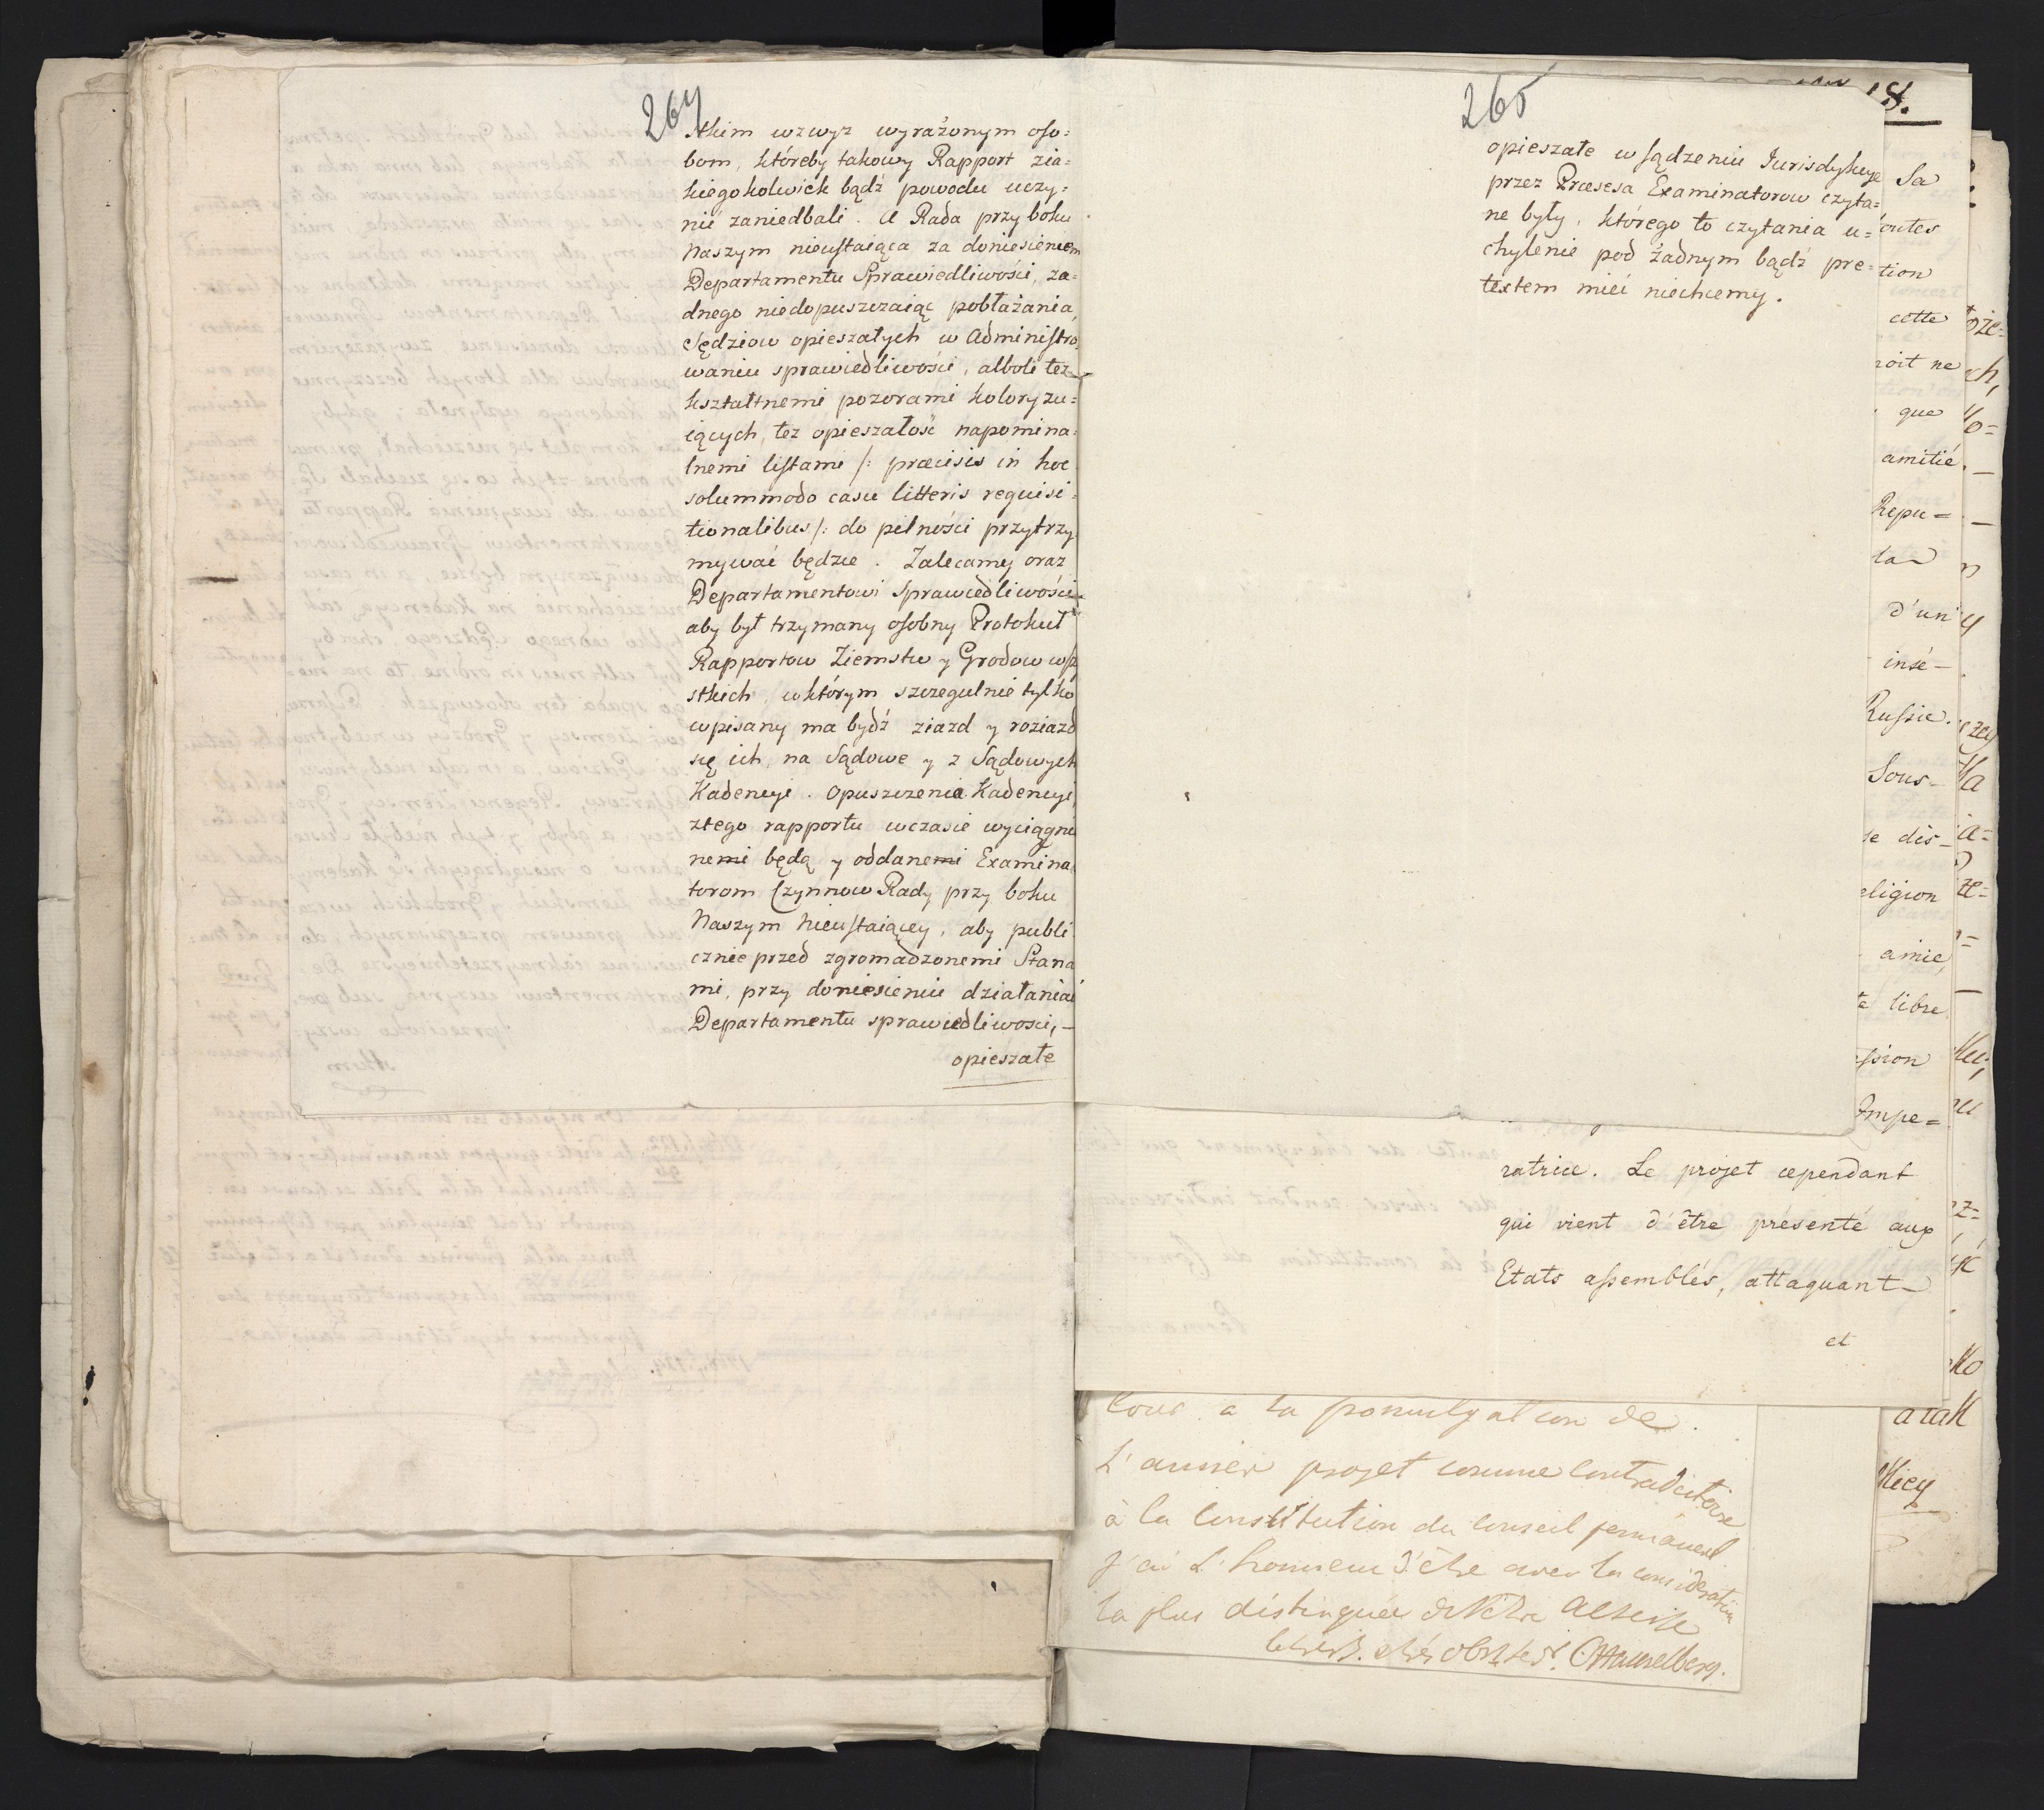 264
stkim wzwyz wyrażonym oso=
bom, któreby takowy Rapport zia=
kiegokolwiek bądź powodu uczy=
nić zaniedbali. A Rada przy boku
Naszym nieustaiąca za doniesieniem
Departamentu Sprawiedliwości, ża=
dnego niedopuszczaiąc pobłażania,
Sędziow opieszałych w Administro
waniu sprawiedliwości, alboli też
kształtnemi pozorami koloryzu=
iących, też opieszałość napomina=
lnemi listami /: præcisis in hoc
solummodo casu litteris requisi=
tionalibus /: do pilności przytrzy
mywać będzie. Zalecamy oraz
Departamentowi Sprawiedliwości
aby był trzymany osobny Protokuł
Rapportow Ziemstw y Grodow wsz
stkich, w którym szczegulnie tylko
wpisany ma bydź ziazd y roziazd
się ich, na Sądowe y z Sądowych
Kadencyi. Opuszczenia Kadencyi,
ztego rapportu wczasie wyciągnie
nemi będą y oddanemi Examina
torom Czynnow Rady przy boku
Naszym nieustaiącey, aby publi
cznie przed zgromadzonemi Stana
mi, przy doniesieniu działaniai
Departamentu sprawiedliwości, —
opieszałe
265
opieszałe w sądzeniu Jurisdykcye
przez Præsesa Examinatorow czyta=
ne były, którego to czytania u=
chylenie pod żadnym bądź pre=
textem mieć niechcemy.
St.
Sa
outes
tion
cette
roit ne
que
amitié
Repu=
la
d'un
insé—
Russie.
Sous—
se dis—
eligion
amie,
te libre
ession
Impe=
ratrice. Le projet cependant
qui vient d'être présenté aux
Etats assemblés, attaquant—
et
à la promulgation de
L'annex projet comme contradictoire
à la Constitution du Conseil permanent
J'ai L'honneur d'être avec la consideration
la plus distinguée de Votre Altesse
O M Stackelberg.